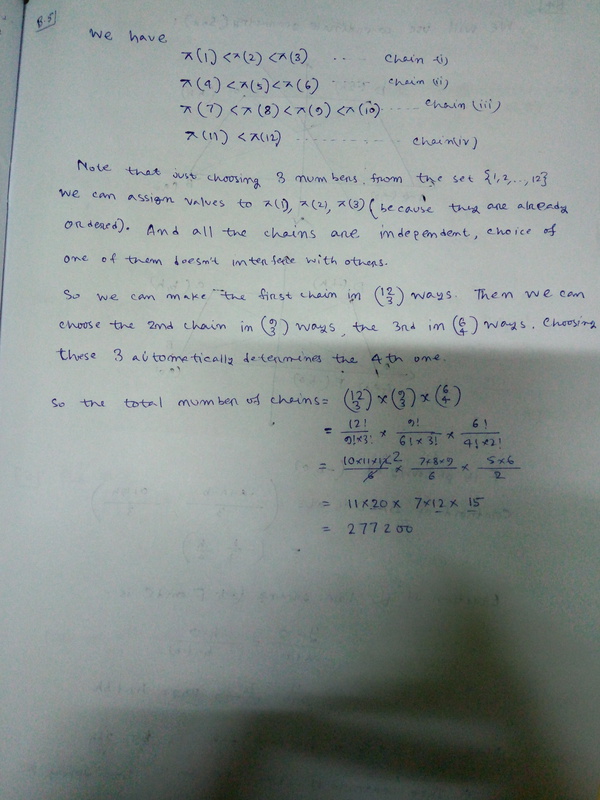 B.5
We have
π(1) < π(2) < π(3) ..... chain (i)
π(4) < π(5) < π(6) ..... chain (ii)
π(7) < π(8) < π(9) < π(10) ..... chain (iii)
π(11) < π(12) ............... chain (iv)
Note that just choosing 3 numbers from the set {1,2,...,12}
we can assign values to π(1), π(2), π(3) (because they are already
ordered). And all the chains are independent, choice of
one of them doesn't interfere with others.
So we can make the first chain in (12 3) ways. Then we can
choose the 2nd chain in (9 3) ways, the 3rd in (6 4) ways. Choosing
these 3 automatically determines the 4th one.
So the total number of chains = (12 3) × (9 3) × (6 4)
= 12!/9!×3! × 9!/6!×3! × 6!/4!×2!
= 10×11×12 2/6 × 7×8×9/6 × 5×6/2
= 11×20 × 7×12 × 15
= 277200